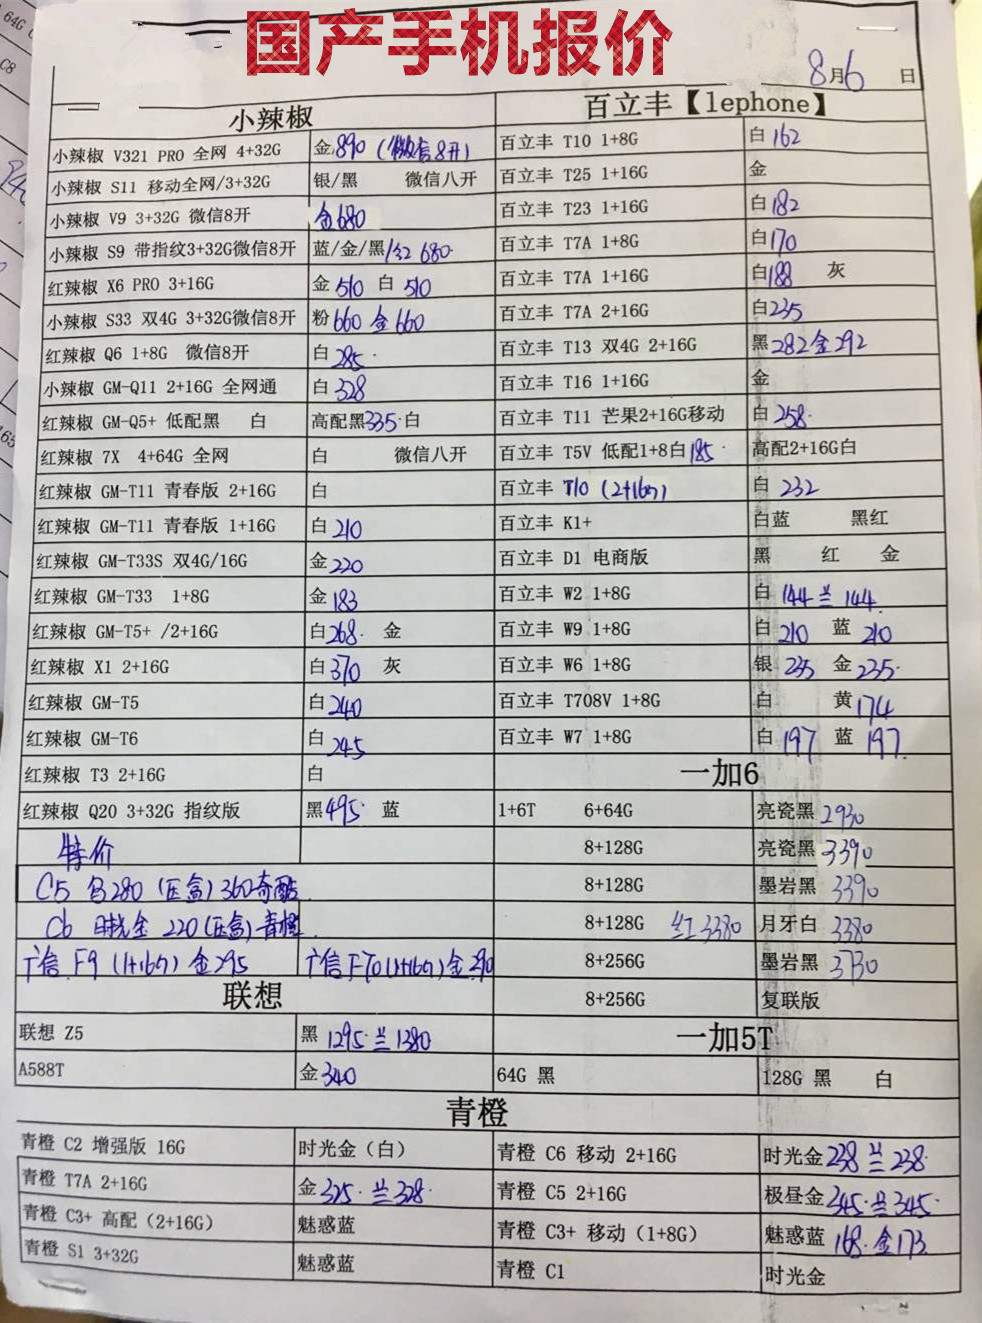 国产手机报价
8月6日
小辣椒
小辣椒 V321 PRO 全网 4+32G 金890（微信8开）
小辣椒 S11 移动全网/3+32G 银/黑 微信八开
小辣椒 V9 3+32G 微信8开 金680
小辣椒 S9 带指纹3+32G微信8开 蓝/金/黑/红 680
红辣椒 X6 PRO 3+16G 金510 白510
小辣椒 S33 双4G 3+32G微信8开 粉660 金660
红辣椒 Q6 1+8G 微信8开 白285
小辣椒 GM-Q11 2+16G 全网通 白328
红辣椒 GM-Q5+ 低配黑 白 高配黑335 白
红辣椒 7X 4+64G 全网 白 微信八开
红辣椒 GM-T11 青春版 2+16G 白
红辣椒 GM-T11 青春版 1+16G 白210
红辣椒 GM-T33S 双4G/16G 金220
红辣椒 GM-T33 1+8G 金183
红辣椒 GM-T5+ /2+16G 白268 金
红辣椒 X1 2+16G 白370 灰
红辣椒 GM-T5 白240
红辣椒 GM-T6 白245
红辣椒 T3 2+16G 白
红辣椒 Q20 3+32G 指纹版 黑495 蓝
特价
C5 白280（压盒）360奇酷
C6 时光金 220（压盒）青橙
广信 F9（1+16G）金295 广信 F70（1+16G）金290
联想
联想 Z5 黑 1295 兰1380
A588T 金340
百立丰【lephone】
百立丰 T10 1+8G 白162
百立丰 T25 1+16G 金
百立丰 T23 1+16G 白182
百立丰 T7A 1+8G 白170
百立丰 T7A 1+16G 白188 灰
百立丰 T7A 2+16G 白235
百立丰 T13 双4G 2+16G 黑282金292
百立丰 T16 1+16G 金
百立丰 T11 芒果2+16G移动 白258
百立丰 T5V 低配1+8白185 高配2+16G白
百立丰 T10（2+16G） 白 232
百立丰 K1+ 白蓝 黑红
百立丰 D1 电商版 黑 红 金
百立丰 W2 1+8G 白 144 兰 144
百立丰 W9 1+8G 白 210 蓝 210
百立丰 W6 1+8G 银 235 金 235
百立丰 T708V 1+8G 白 黄174
百立丰 W7 1+8G 白 197 蓝 197
一加6
1+6T 6+64G 亮瓷黑 2930
8+128G 亮瓷黑 3390
8+128G 墨岩黑 3390
8+128G 红3380 月牙白 3380
8+256G 墨岩黑 3730
8+256G 复联版
一加5T
64G 黑 128G 黑 白
青橙
青橙 C2 增强版 16G 时光金（白） 青橙 C6 移动 2+16G 时光金238 兰238
青橙 T7A 2+16G 金325 兰328 青橙 C5 2+16G 极昼金345 兰345
青橙 C3+ 高配（2+16G） 魅惑蓝 青橙 C3+ 移动（1+8G） 魅惑蓝 168 金173
青橙 S1 3+32G 魅惑蓝 青橙 C1 时光金